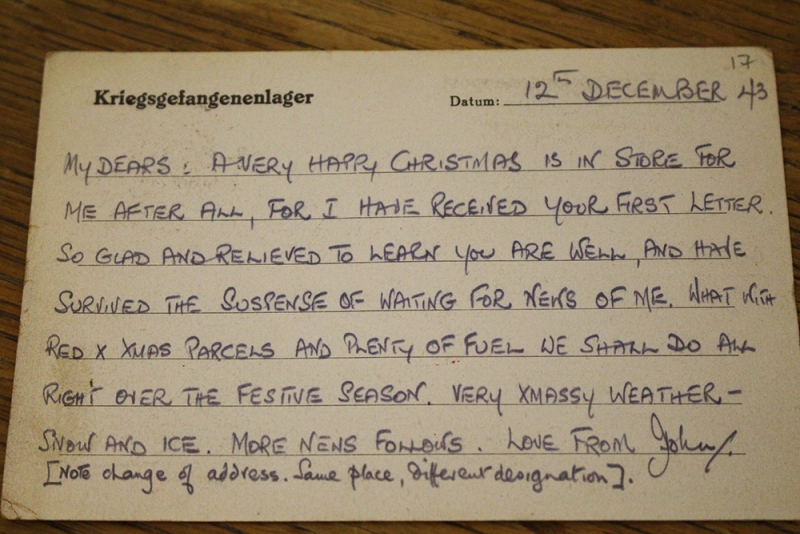 17
Kriegsgefangenenlager Datum: 12TH DECEMBER 43
MY DEARS: A VERY HAPPY CHRISTMAS IS IN STORE FOR
ME AFTER ALL, FOR I HAVE RECEIVED YOUR FIRST LETTER.
SO GLAD AND RELIEVED TO LEARN YOU ARE WELL, AND HAVE
SURVIVED THE SUSPENSE OF WAITING FOR NEWS OF ME. WHAT WITH
RED X XMAS PARCELS AND PLENTY OF FUEL WE SHALL DO ALL
RIGHT OVER THE FESTIVE SEASON. VERY XMASSY WEATHER -
SNOW AND ICE. MORE NEWS FOLLOWS. LOVE FROM John/.
[Note change of address. Same place, different designation].